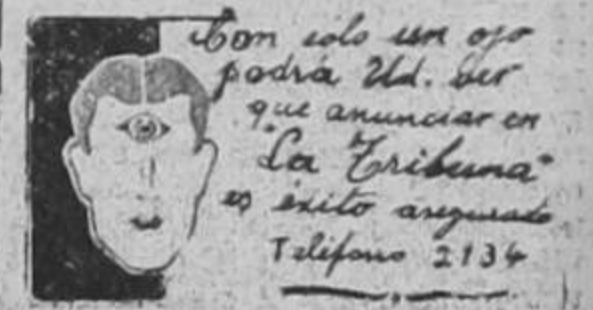 Con solo un ojo
podrá Ud. ver
que anunciar en
"La Tribuna"
es éxito asegurado
Teléfono 2134